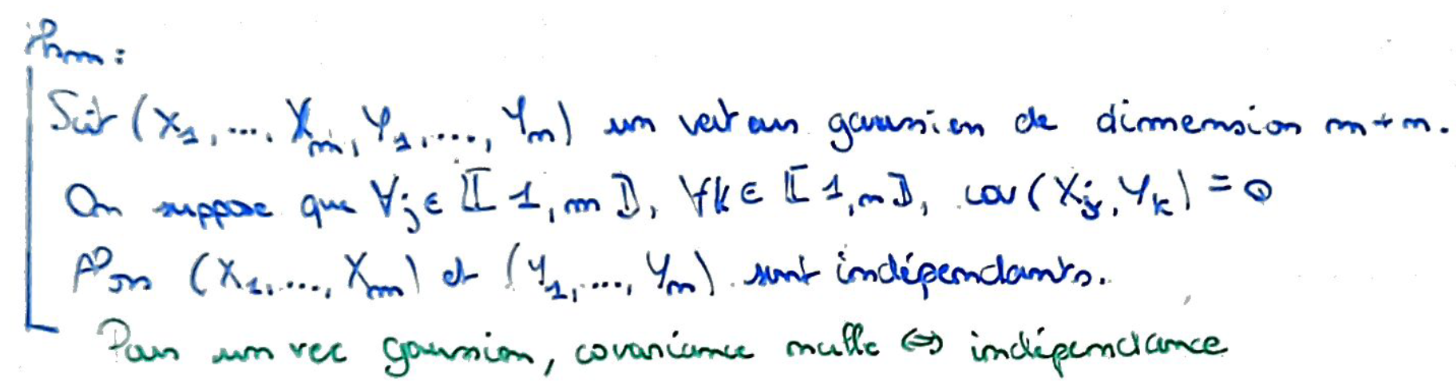 Thm :
Soit (X_1, ..., X_m, Y_1, ..., Y_n) un vecteur gaussien de dimension m+n.
On suppose que ∀j ∈ ⟦1, m⟧, ∀k ∈ ⟦1, n⟧, cov(X_j, Y_k) = 0
Alors (X_1, ..., X_m) et (Y_1, ..., Y_n) sont indépendants.
Pour un vec gaussien, covariance nulle ⇔ indépendance